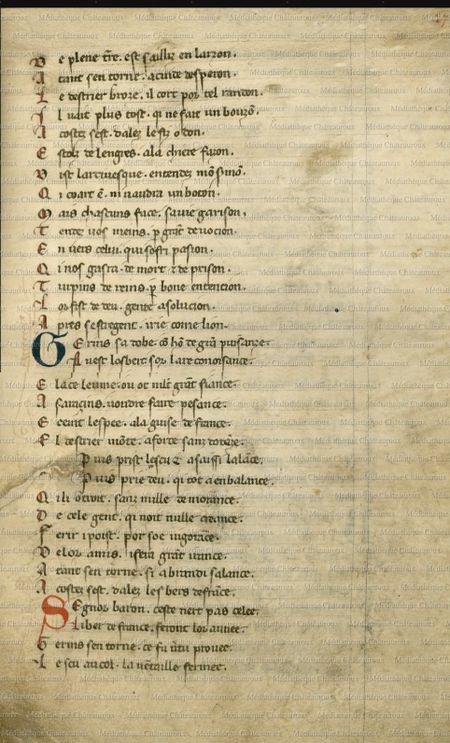 D e plene tre . est sailliz en larzon .
A tant sen torne . a cuite desperon .
L e destrier broze . il cort por tel randon .
I l uait plus tost . qi ne fait un bouzon
A costez sest . dalez le
E stolz de lengres . a la chiere façon .
D ist larciuesque . entendez
Q i coart e . ni uaudra un boton .
M ais chascuns face . sa uie garison .
T endez uos meins . p grat deuocion .
E n uers celui . qui sofri pasion .
Q i nos gaita . de mort . z de prison .
T urpins de reins . p bone entencion .
L or fist de deu . gente asolucion .
A pres sestregent . irie come lion .
G Erins sa dobe . co ho de gra puisance .
A uest losberc sor la reconoisance .
E lace leiume . ou ot mlt grat fiance .
A sarraçins . uoudre faire pesance .
E ceint lespee . a la guise de france .
E l destrier mote . a force sanz
P uis prist lescu z a saissi la lance .
P uis prie deu . qi tot a en balance .
Q il ocioit . sanz nulle demorance .
D e cele gent . qi noit nulle creance .
F erir i poist . por soe ingorace .
D e lor amis . i fera grat uiance .
A tant sen torne . si a brandi sa lance .
A costez sest . dalez les bers de frace .
S Egnor baron . ceste nert pas celee .
L i ber de france . feront lor
G erins sen torne . ce fu uertu prouee .
L e scu au col . la uentaille fermee .
Médiathèque Châteauroux